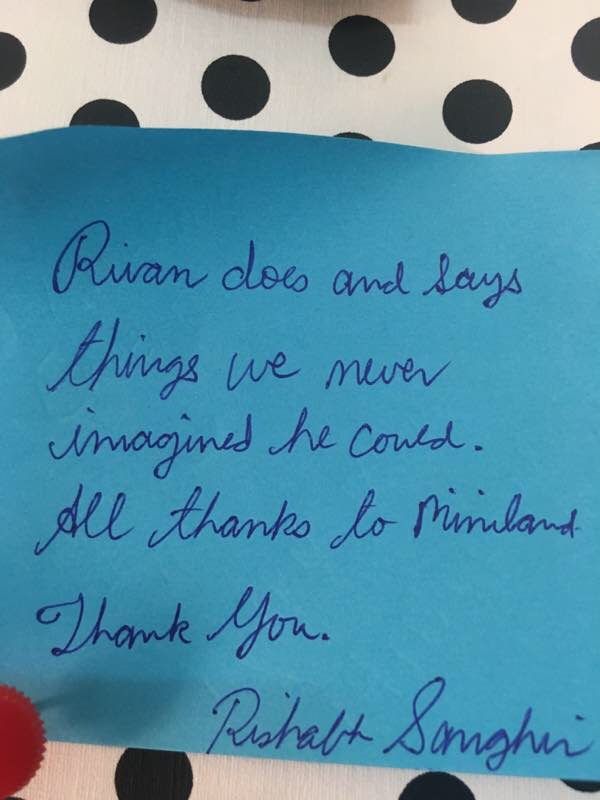 Rivan does and says
things we never
imagined he could.
All thanks to Miniland
Thank You.
Rishabh Sanghvi